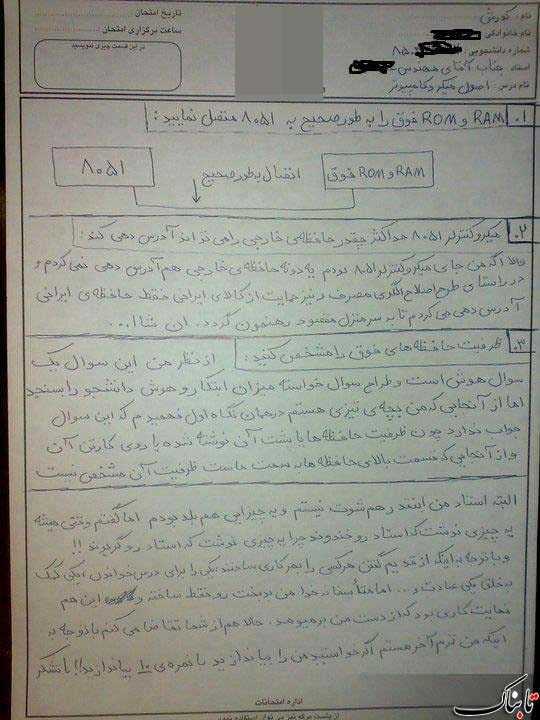 نام: کورش
نام خانوادگی:
شماره دانشجویی: ۸۵۰
استاد: جناب آقای مهندس
نام درس: اصول میکروکامپیوتر
تاریخ امتحان:
ساعت برگزاری امتحان:
در این قسمت چیزی ننویسید
۱. RAM و ROM فوق را به طور صحیح به ۸۰۵۱ متصل نمایید:
RAM و ROM فوق
اتصال به طور صحیح
۸۰۵۱
۲. میکروکنترلر ۸۰۵۱ حداکثر چقدر حافظه‌ی خارجی را می تواند آدرس دهی کند:
والا اگه من جای میکروکنترلر ۸۰۵۱ بودم یه دونه حافظه‌ی خارجی هم آدرس دهی نمی کردم و
در راستای طرح اصلاح الگوی مصرف و نیز حمایت از کالای ایرانی فقط حافظه‌ی ایرانی
آدرس دهی می کردم تا به سرمنزل مقصود رهنمون گردد. ان شاا...
۳. ظرفیت حافظه های فوق را مشخص کنید: از نظر من این سوال یک
سوال هوش است و طراح سوال خواسته میزان ابتکار و هوش دانشجو را بسنجد
اما از آنجایی که من بچه ی تیزی هستم در همان نگاه اول فهمیدم که این سوال
جواب ندارد چون ظرفیت حافظه ها یا پشت آن نوشته شده یا روی کارتن آن
و از آنجایی که قسمت بالای حافظه ها به سمت ماست ظرفیت آن مشخص نیست
البته استاد من اینقدر هم شوت نیستم و یه چیزایی هم بلد بودم اما گفتم وقتی میشه
یه چیزی نوشت که استاد رو خندوند چرا یه چیزی نوشت که استاد رو گریوند!!
و با توجه به اینکه از قدیم گفتن هر کسی را بهر کاری ساختند، یکی را برای درس خواندن، یکی کمک
به خلق یکی عبادت و... اما متأسفانه خدا من بدبخت رو فقط ساخته و این هم
نهایت کاری بود که از دست من برمیومد. حالا هم از شما تقاضا می کنم با توجه به
اینکه من ترم آخر هستم اگه خواستید من را بیندازید با نمره ی ۱۰ بیندازید!! با تشکر
اداره امتحانات
از پشت برگه نیز می توان استفاده نمود
تابناک